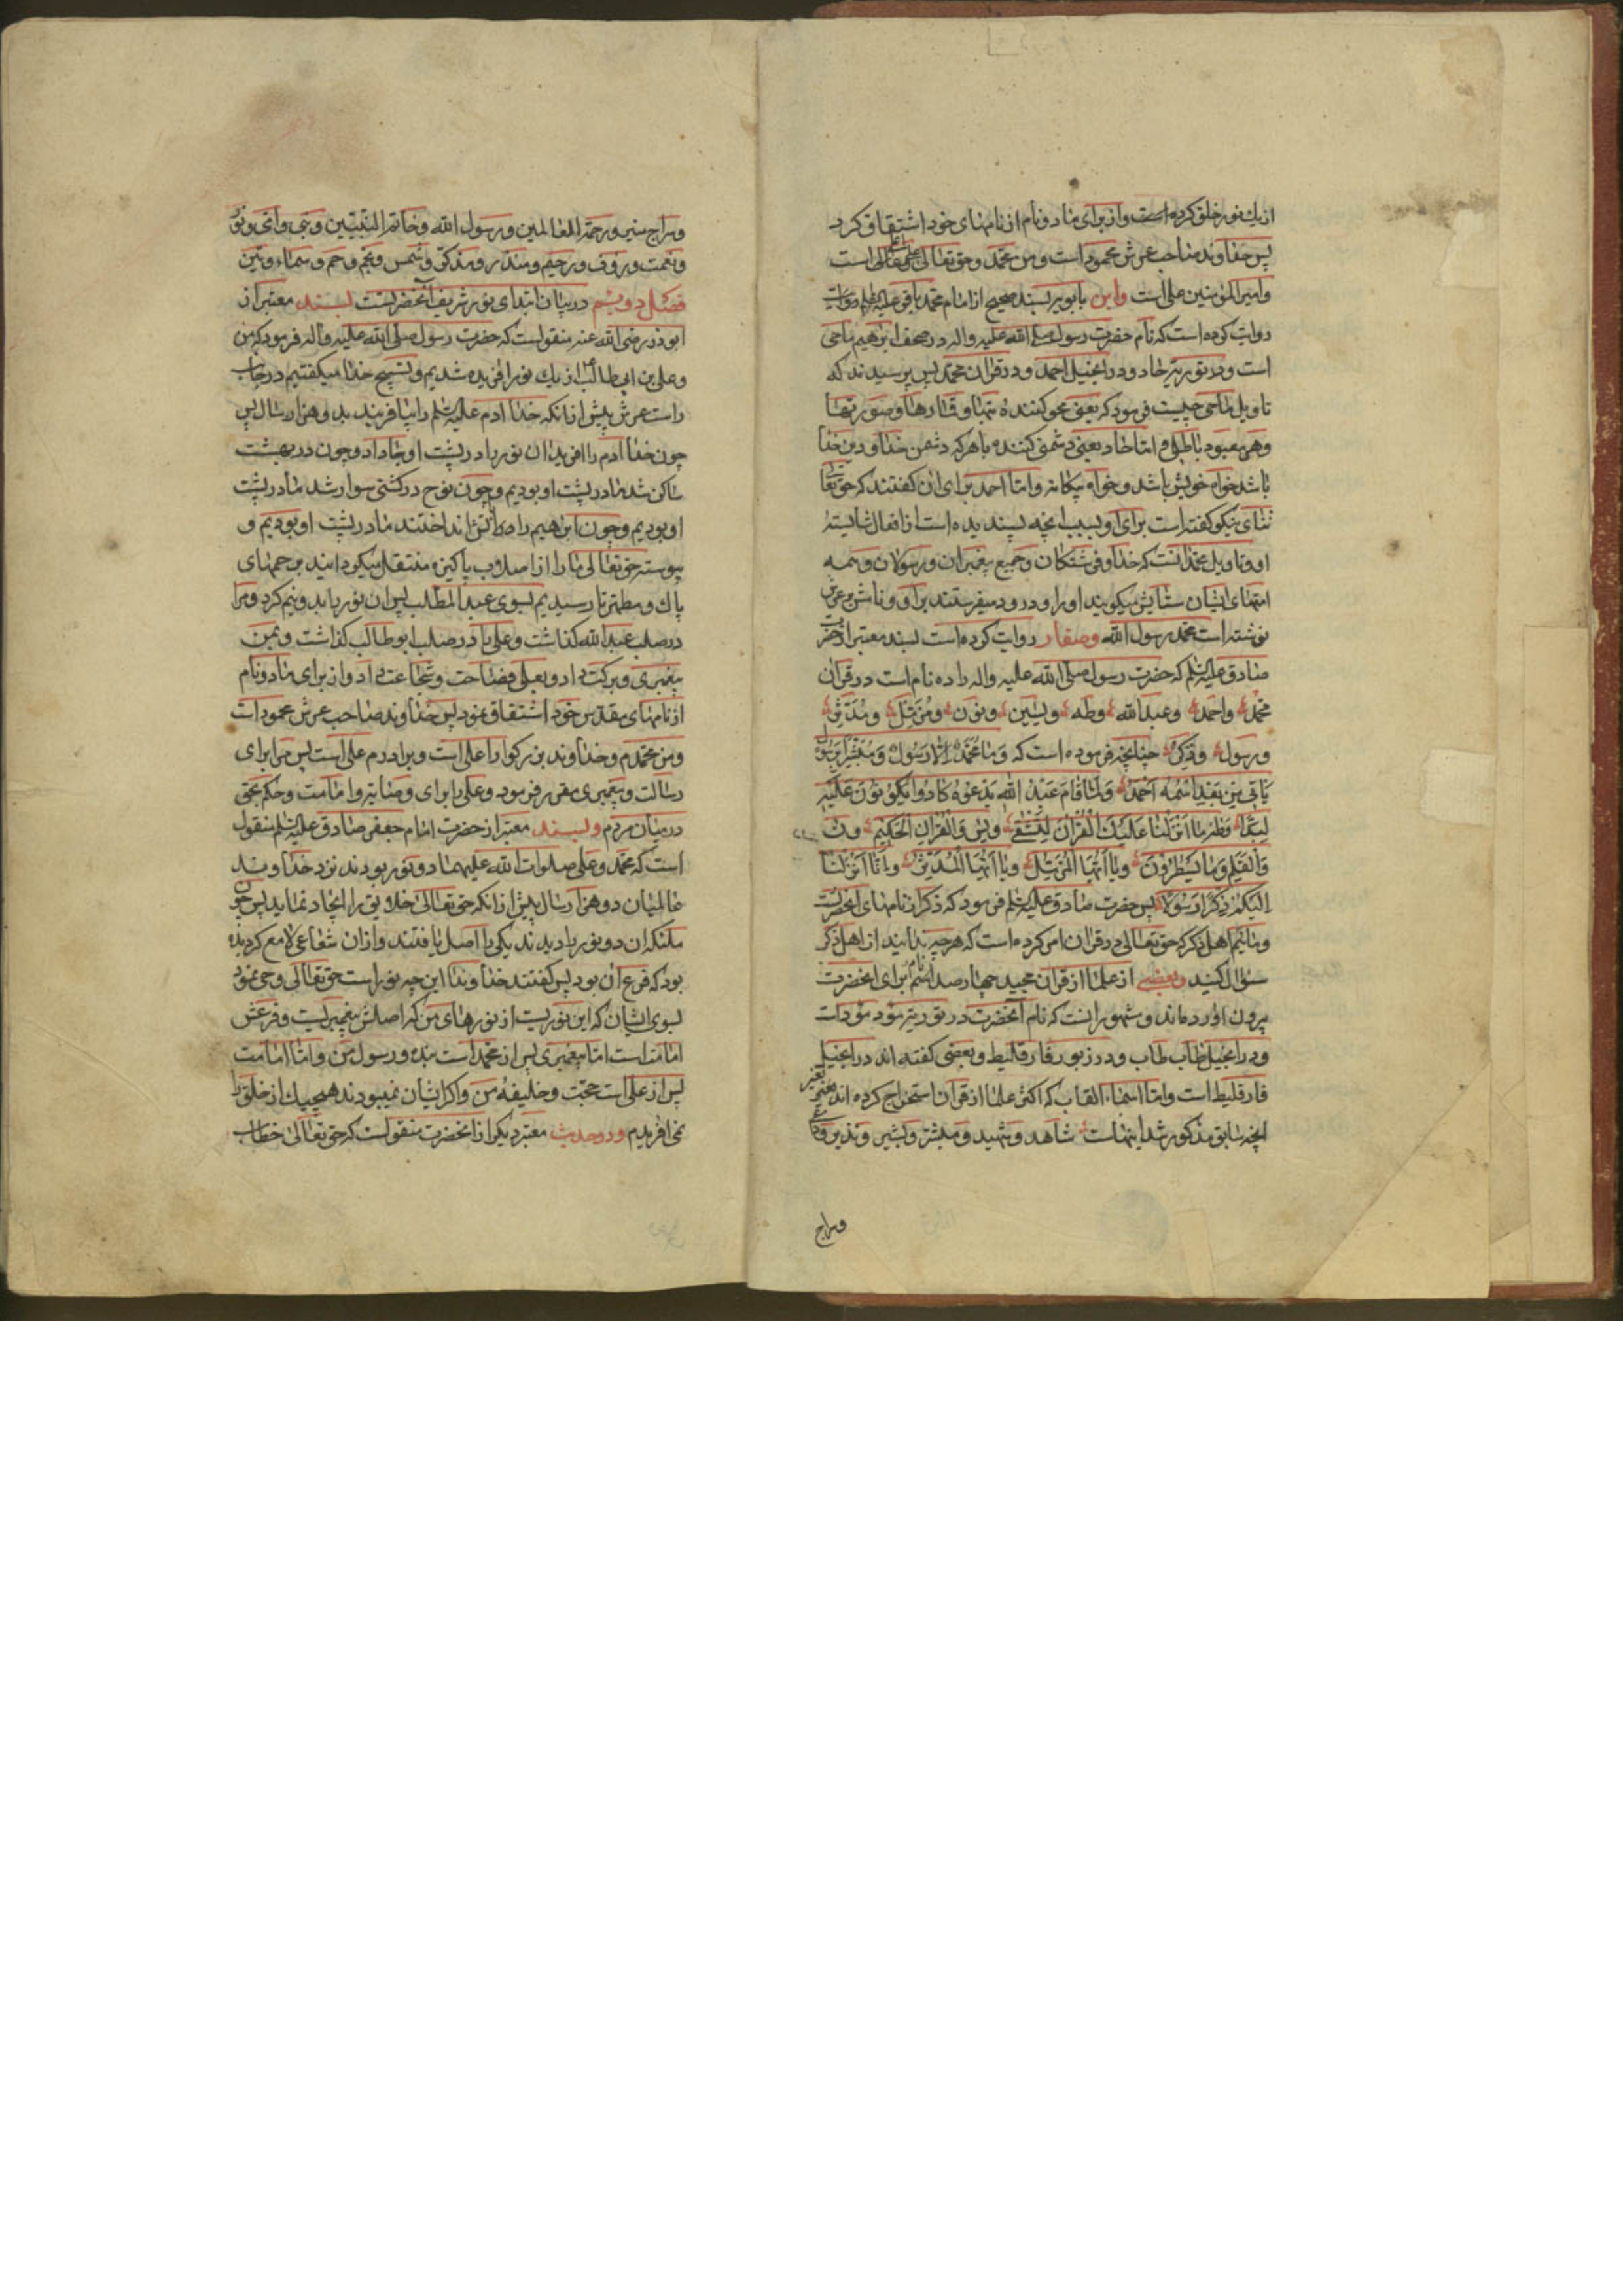 از یك نور خلق کرده است و از برای ما دو نام از نامهای خود اشتقاق کرد
پس خداوند صاحب عرش محمود است و من محمد و حق تعالی علی اعلی است
و امیر المؤمنین علی است وابن بابویه بسند صحیح از امام محمد باقر علیه السلم
روایت کرده است که نام حضرت رسول صلی الله علیه واله در صحف ابرهیم ماحی
است و در توریة حاد و در انجیل احمد و در قران محمد پس پرسیدند که
تاویل ماحی چیست فرمود که یعنی محو کننده بتها و قمارها و صورتها
وهر معبود باطل و اما حاد یعنی دشمنی کننده با هر که دشمن خدا و دین خدا
باشد خواه خویش باشد و خواه بیکانه و اما احمد برای ان کفتند که حق تعالی
ثنای نیکو کفته است برای او بسبب انچه پسندیده است از افعال شایسته
او و تاویل محمد انست که خدا و فرشتکان و جمیع پیغمبران و رسولان و همه
امتهای ایشان ستایش میکویند او را و درود میفرستند بر او و نامش بر عرش
نوشته است محمد رسول الله وصفار روایت کرده است بسند معتبر از حضرت
صادق علیه السلم که حضرت رسول صلی الله علیه واله را ده نام است در قران
محمد واحمد وعبد الله وطه ویسین ونون ومزمل ومدثر
ورسول وذکر چنانچه فرموده است که وما محمد الا رسول ومبشرا برسول
یاتی من بعدی اسمه احمد ولما قام عبد الله یدعوه کادوا یکونون علیه
لبدا وطه ما انزلنا علیك القران لتشقی ویس والقران الحکیم ون
والقلم وما یسطرون ویا ایها المزمل ویا ایها المدثر وانا انزلنا
الیکم ذکرا رسولا پس حضرت صادق علیه السلم فرمود که ذکر از نامهای انحضرتست
و مائیم اهل ذکر که حق تعالی در قران امر کرده است که هر چه ندانید از اهل ذکر
سؤال کنید وبعضی از علما از قران مجید چهار صد نام برای انحضرت
بیرون اورده اند و مشهور انست که نام آنحضرت در توریة مؤد مؤد است
و در انجیل طاب طاب و در زبور فارقلیط و بعضی کفته اند در انجیل
فارقلیط است و اما اسماء القاب که اکثر علما از قران استخراج کرده اند بغیر
انچه سابق مذکور شد اینهاست شاهد و شهید و مبشر و بشیر و نذیر و داعی
وسراج
وسراج منیر و رحمة للعالمین و رسول الله وخاتم النبیین و نبی وامی و نور
ونعمت و رؤف و رحیم و منذر و مذکر و شمس و نجم و حم و سماء و تین
فصل دویم در بیان ابتدای نور شریف آنحضرتست بسند معتبر از
ابوذر رضی الله عنه منقولست که حضرت رسول صلی الله علیه واله فرمود که من
و علی بن ابی طالب از یك نور افریده شدیم و تسبیح خدا میکفتیم در جانب
راست عرش پیش از انکه خدا ادم علیه السلم را بیافریند بدو هزار سال پس
چون خدا ادم را افرید ان نور را در پشت او جا داد و چون در بهشت
ساکن شد ما در پشت او بودیم و چون نوح در کشتی سوار شد ما در پشت
او بودیم و چون ابرهیم را در اتش انداختند ما در پشت او بودیم و
پیوسته حق تعالی ما را از اصلاب پاکیزه منتقل میکردانید برحمهای
پاك و مطهر تا رسیدیم بسوی عبد المطلب پس ان نور را بدو نیم کرد و مرا
در صلب عبد الله کذاشت و علی را در صلب ابوطالب کذاشت و بمن
پیغمبری و برکت داد و بعلی فصاحت و شجاعت داد و از برای ما دو نام
از نامهای مقدس خود اشتقاق نمود پس خداوند صاحب عرش محمود است
و من محمدم و خداوند بزرکوار اعلی است و برادرم علی است پس مرا برای
رسالت و پیغمبری مقرر فرمود و علی را برای وصایة و امامت و حکم بحق
در میان مردم وبسند معتبر از حضرت امام جعفر صادق علیه السلم منقول
است که محمد و علی صلوات الله علیهما دو نور بودند نزد خداوند
عالمیان دو هزار سال پیش از انکه حق تعالی خلایق را ایجاد نماید پس چون
ملئکه ان دو نور را دیدند یکی را اصل یافتند و از ان شعاعی لامع کردیده
بود که فرع ان بود پس کفتند خداوندا این چه نور است حق تعالی وحی نمود
بسوی ایشان که این نوریست از نورهای من که اصلش پیغمبریست و فرعش
امامت است اما پیغمبری پس از محمد است بنده و رسول من و اما امامت
پس از علی است حجت و خلیفه من و اکر ایشان نمیبودند هیچیك از خلق را
نمی افریدم ودر حدیث معتبر دیکر از انحضرت منقولست که حق تعالی خطاب